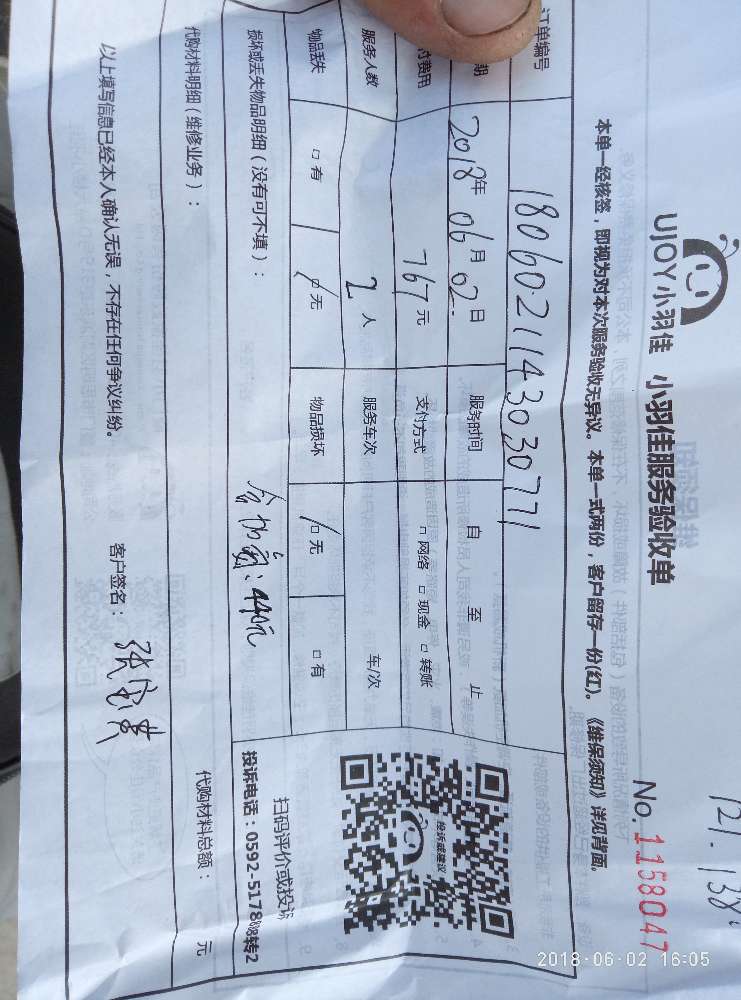 121.138
UJOY小羽佳 小羽佳服务验收单
No.1158047
本单一经核签，即视为对本次服务验收无异议。本单一式两份，客户留存一份(红)。《维保须知》详见背面。
订单编号 180602114303077１
期 2018年06月02日 服务时间 自 至 止
付费用 767元 支付方式 □网络 □现金 □转账
服务人数 2人 服务车次 车/次
物品丢失 □有 □无 物品损坏 □无 □有
损坏或丢失物品明细（没有可不填）：
440元
投诉或建议
扫码评价或投诉
投诉电话：0592-5178888转2
代购材料明细（维修业务）： 代购材料总额： 元
以上填写信息已经本人确认无误，不存在任何争议纠纷。 客户签名：
2018-06-02 16:05